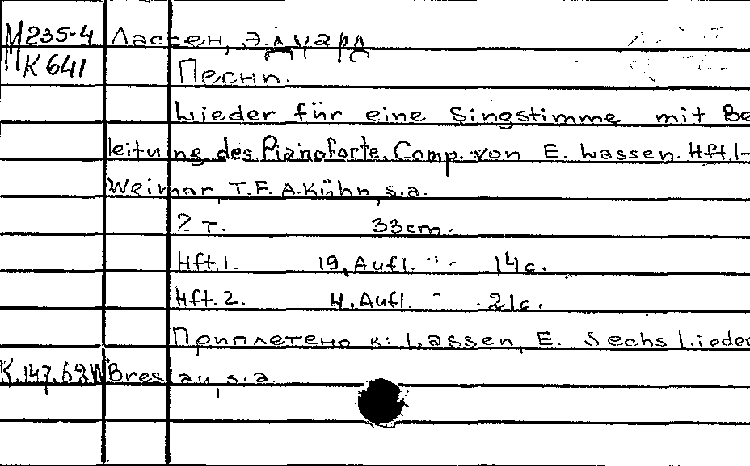 М235-4 Лассен, Эдуард
К641 Песни.
Lieder für eine Singstimme mit Be
leitung des Pianoforte. Comp. von E. Lassen. Hft. 1-
Weimar, T. F. A. Kühn, s.a.
2 т. 33cm.
Hft. 1. 19. Aufl. 14 с.
Hft. 2. 4. Aufl. 21 с.
Приплетено к: Lassen, E. Sechs Lieder
Breslau, s.a.